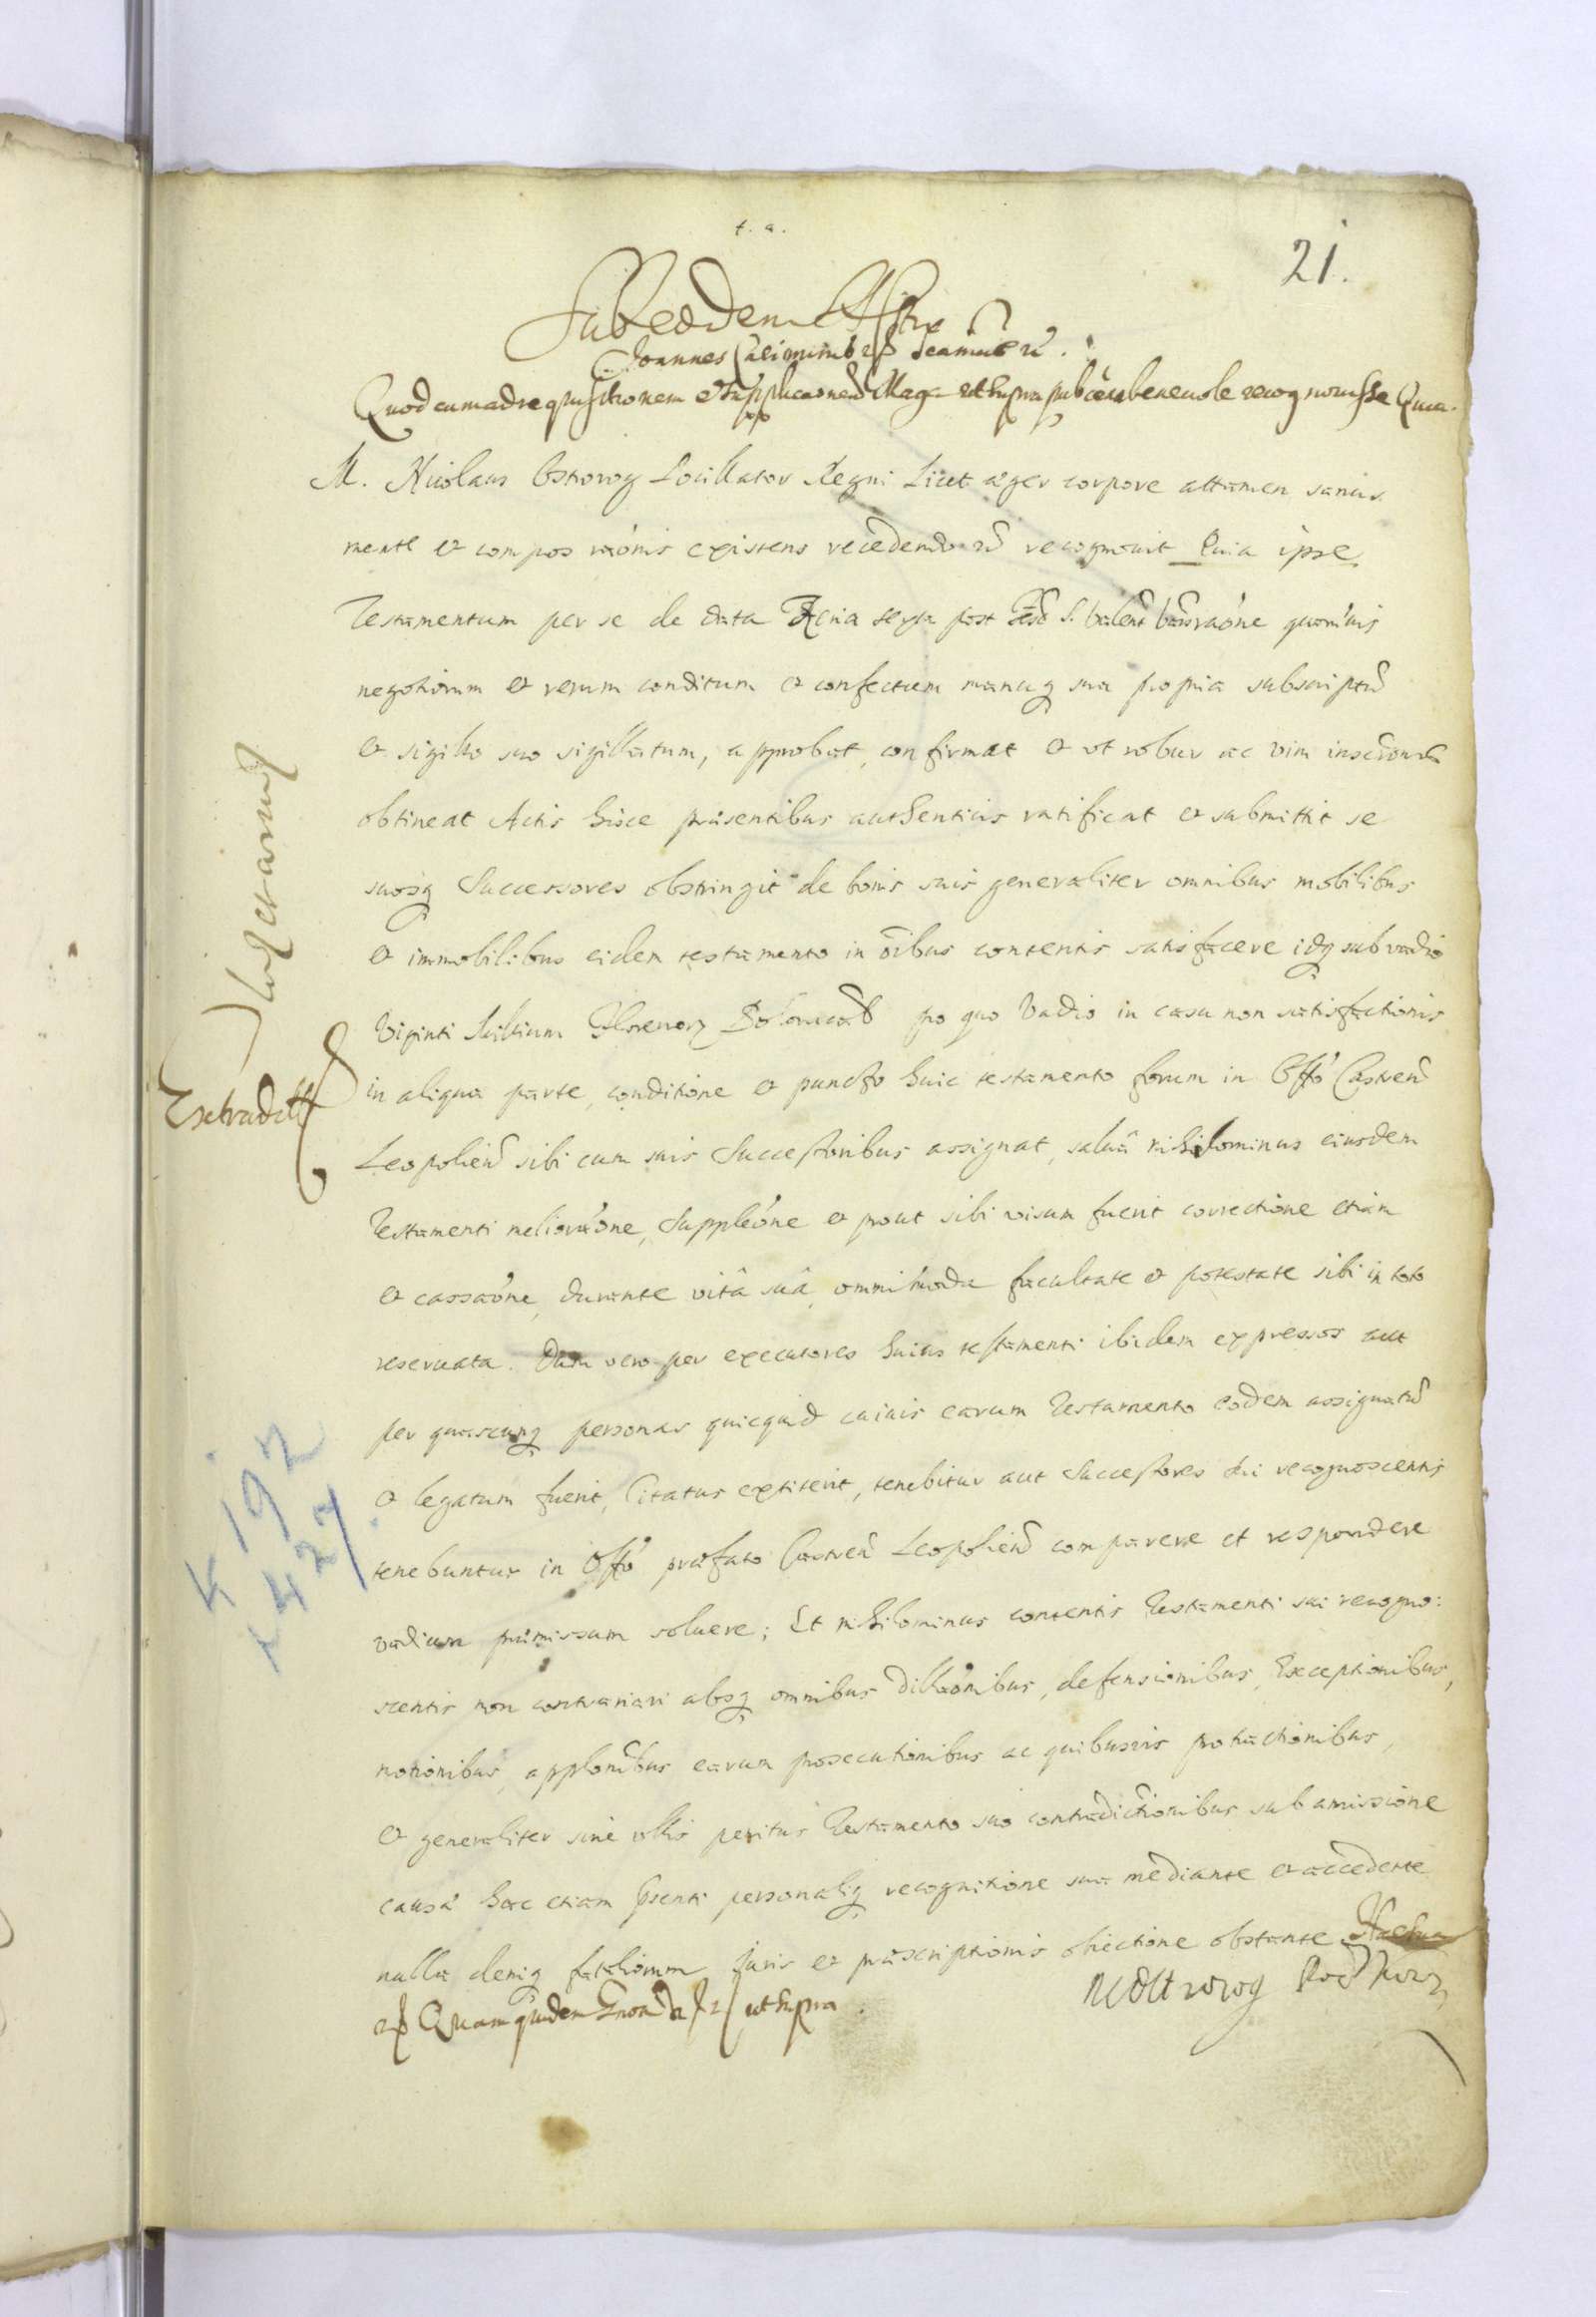 t. a.
21.
Sub eodem Actu
Joannes Casimirus Deamus
Quod cum ad requisitionem et supplicaonem Mag ut supra benevole recognovisse Quia
M. Nicolaus Ostrorog Pocillator Regni Licet æger corpore attamen sanus
mente et compos raónis existens recedendo recognovit Quia ipse
Testamentum per se de data feria sexta post S. Valent
negotiorum et rerum conditum et confectum manuq sua propria subscriptu
et sigillo suo sigillatum, approbat, confirmat et ut robur ac vim
obtineat Actis hisce præsentibus authenticis ratificat et submittit se
suosq Successores obstringit de bonis suis generaliter omnibus mobilibus
et immobilibus eidem testamento in oibus contentis satisfacere idq sub vadio
Viginti Millium Florenor Polonical pro quo Vadio in casu non satisfactionis
in aliqua parte, conditione et puncto huic testamento forum in Offo Castren
Leopolien sibi cum suis Successoribus assignat, salvâ nihilominus eiusdem
Testamenti melioraóne, Suppleóne et prout sibi visum fuerit correctione etiam
et cassaóne, durante vitâ suâ, omnimoda facultate et potestate sibi in toto
reservata. Dum vero per executores huius testamenti ibidem expressos aut
per quascunq personas quicquid cuivis earum Testamento eodem assignatu
et legatum fuerit, Citatus extiterit, tenebitur aut Successores sui recognoscentis
tenebuntur in Offo præfato Castren Leopolien comparere et respondere
vadium præmissum solvere; Et nihilominus contentis Testamenti sui recogno:
scentis non contrariari absq omnibus dillaónibus, defensionibus, Exceptionibus,
motionibus, applonibus earum prosecutionibus ac quibusvis protractionibus,
et generaliter sine ullis penitus Testamento suo contradictionibus sub amissione
causæ hac etiam psenti personaliq recognitione sua mediante et accedente
nulla deniq fataliorum juris et præscriptionis obiectione obstante
NOstrorog Pod Kor
Quam quidem ut supra
Extradit
K 192
x 427